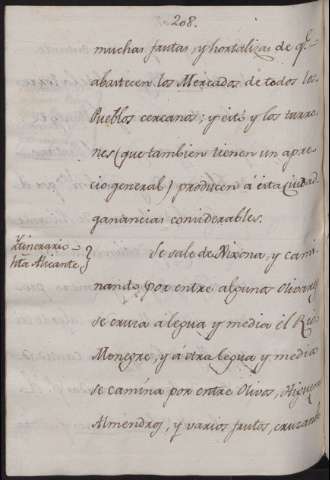 208.
muchas frutas, y hortalizas de q.e
abastecen los Mercados de todos los
Pueblos cercanos; y esto y los turro-
nes (que tambien tienen un apre-
cio general) producen á esta Ciudad
ganancias considerables.
Itinerario
hta Alicante
Se sale de Xixona, y cami
nando por entre algunos Olivares
se cruza á legua y media el Rio
Monegre, y á otra legua y media
se camina por entre Olivos, Higueras
Almendros, y varios frutos, cruzando